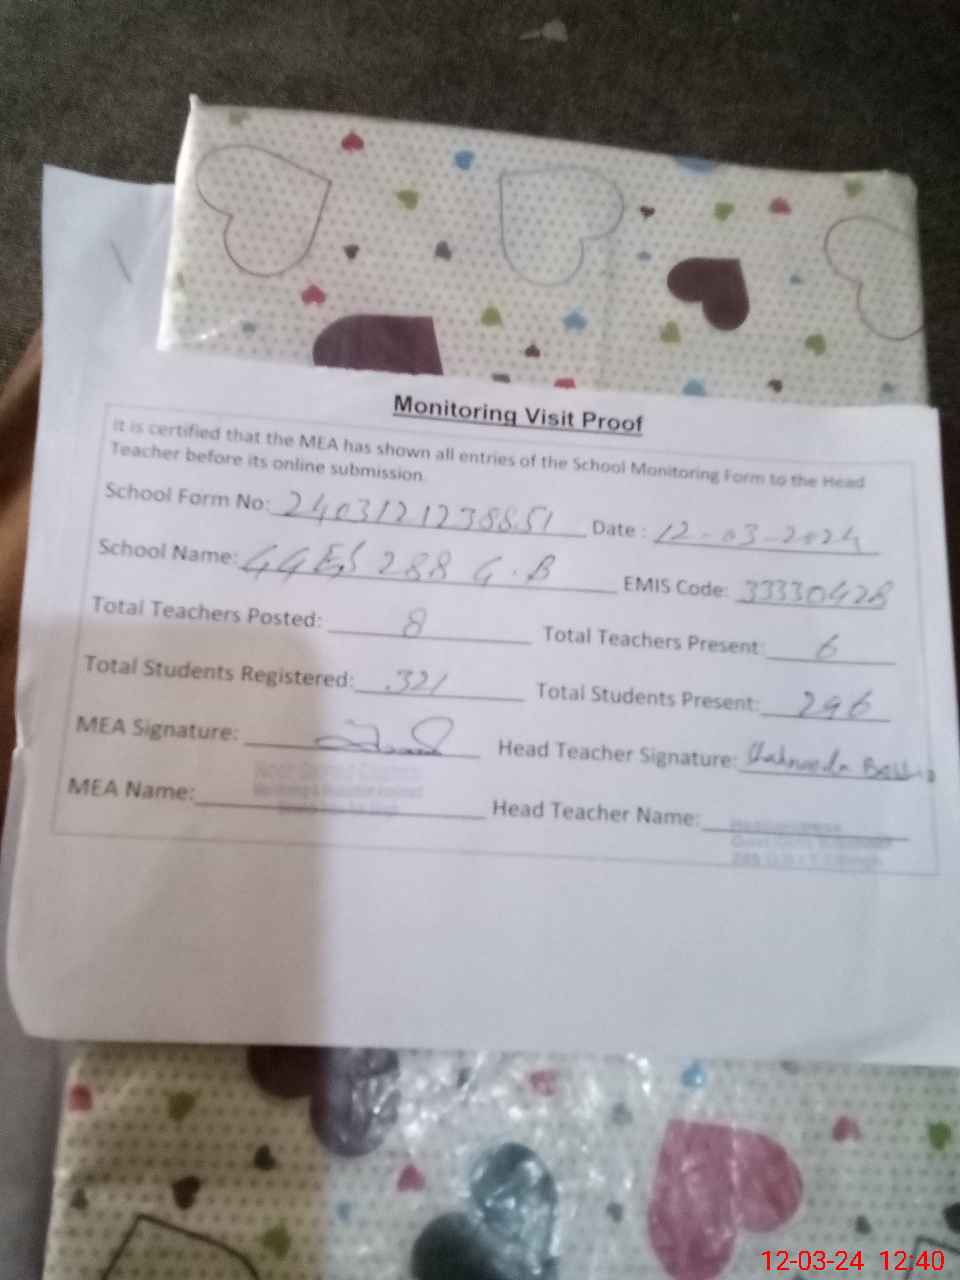 Monitoring Visit Proof
It is certified that the MEA has shown all entries of the School Monitoring Form to the Head
Teacher before its online submission.
School Form No: 2403121238851 Date : 12-03-2024
School Name: GGES 288 G.B EMIS Code: 33330428
Total Teachers Posted: 8 Total Teachers Present: 6
Total Students Registered: 321 Total Students Present: 296
MEA Signature: Head Teacher Signature:
MEA Name: Head Teacher Name:
12-03-24 12:40